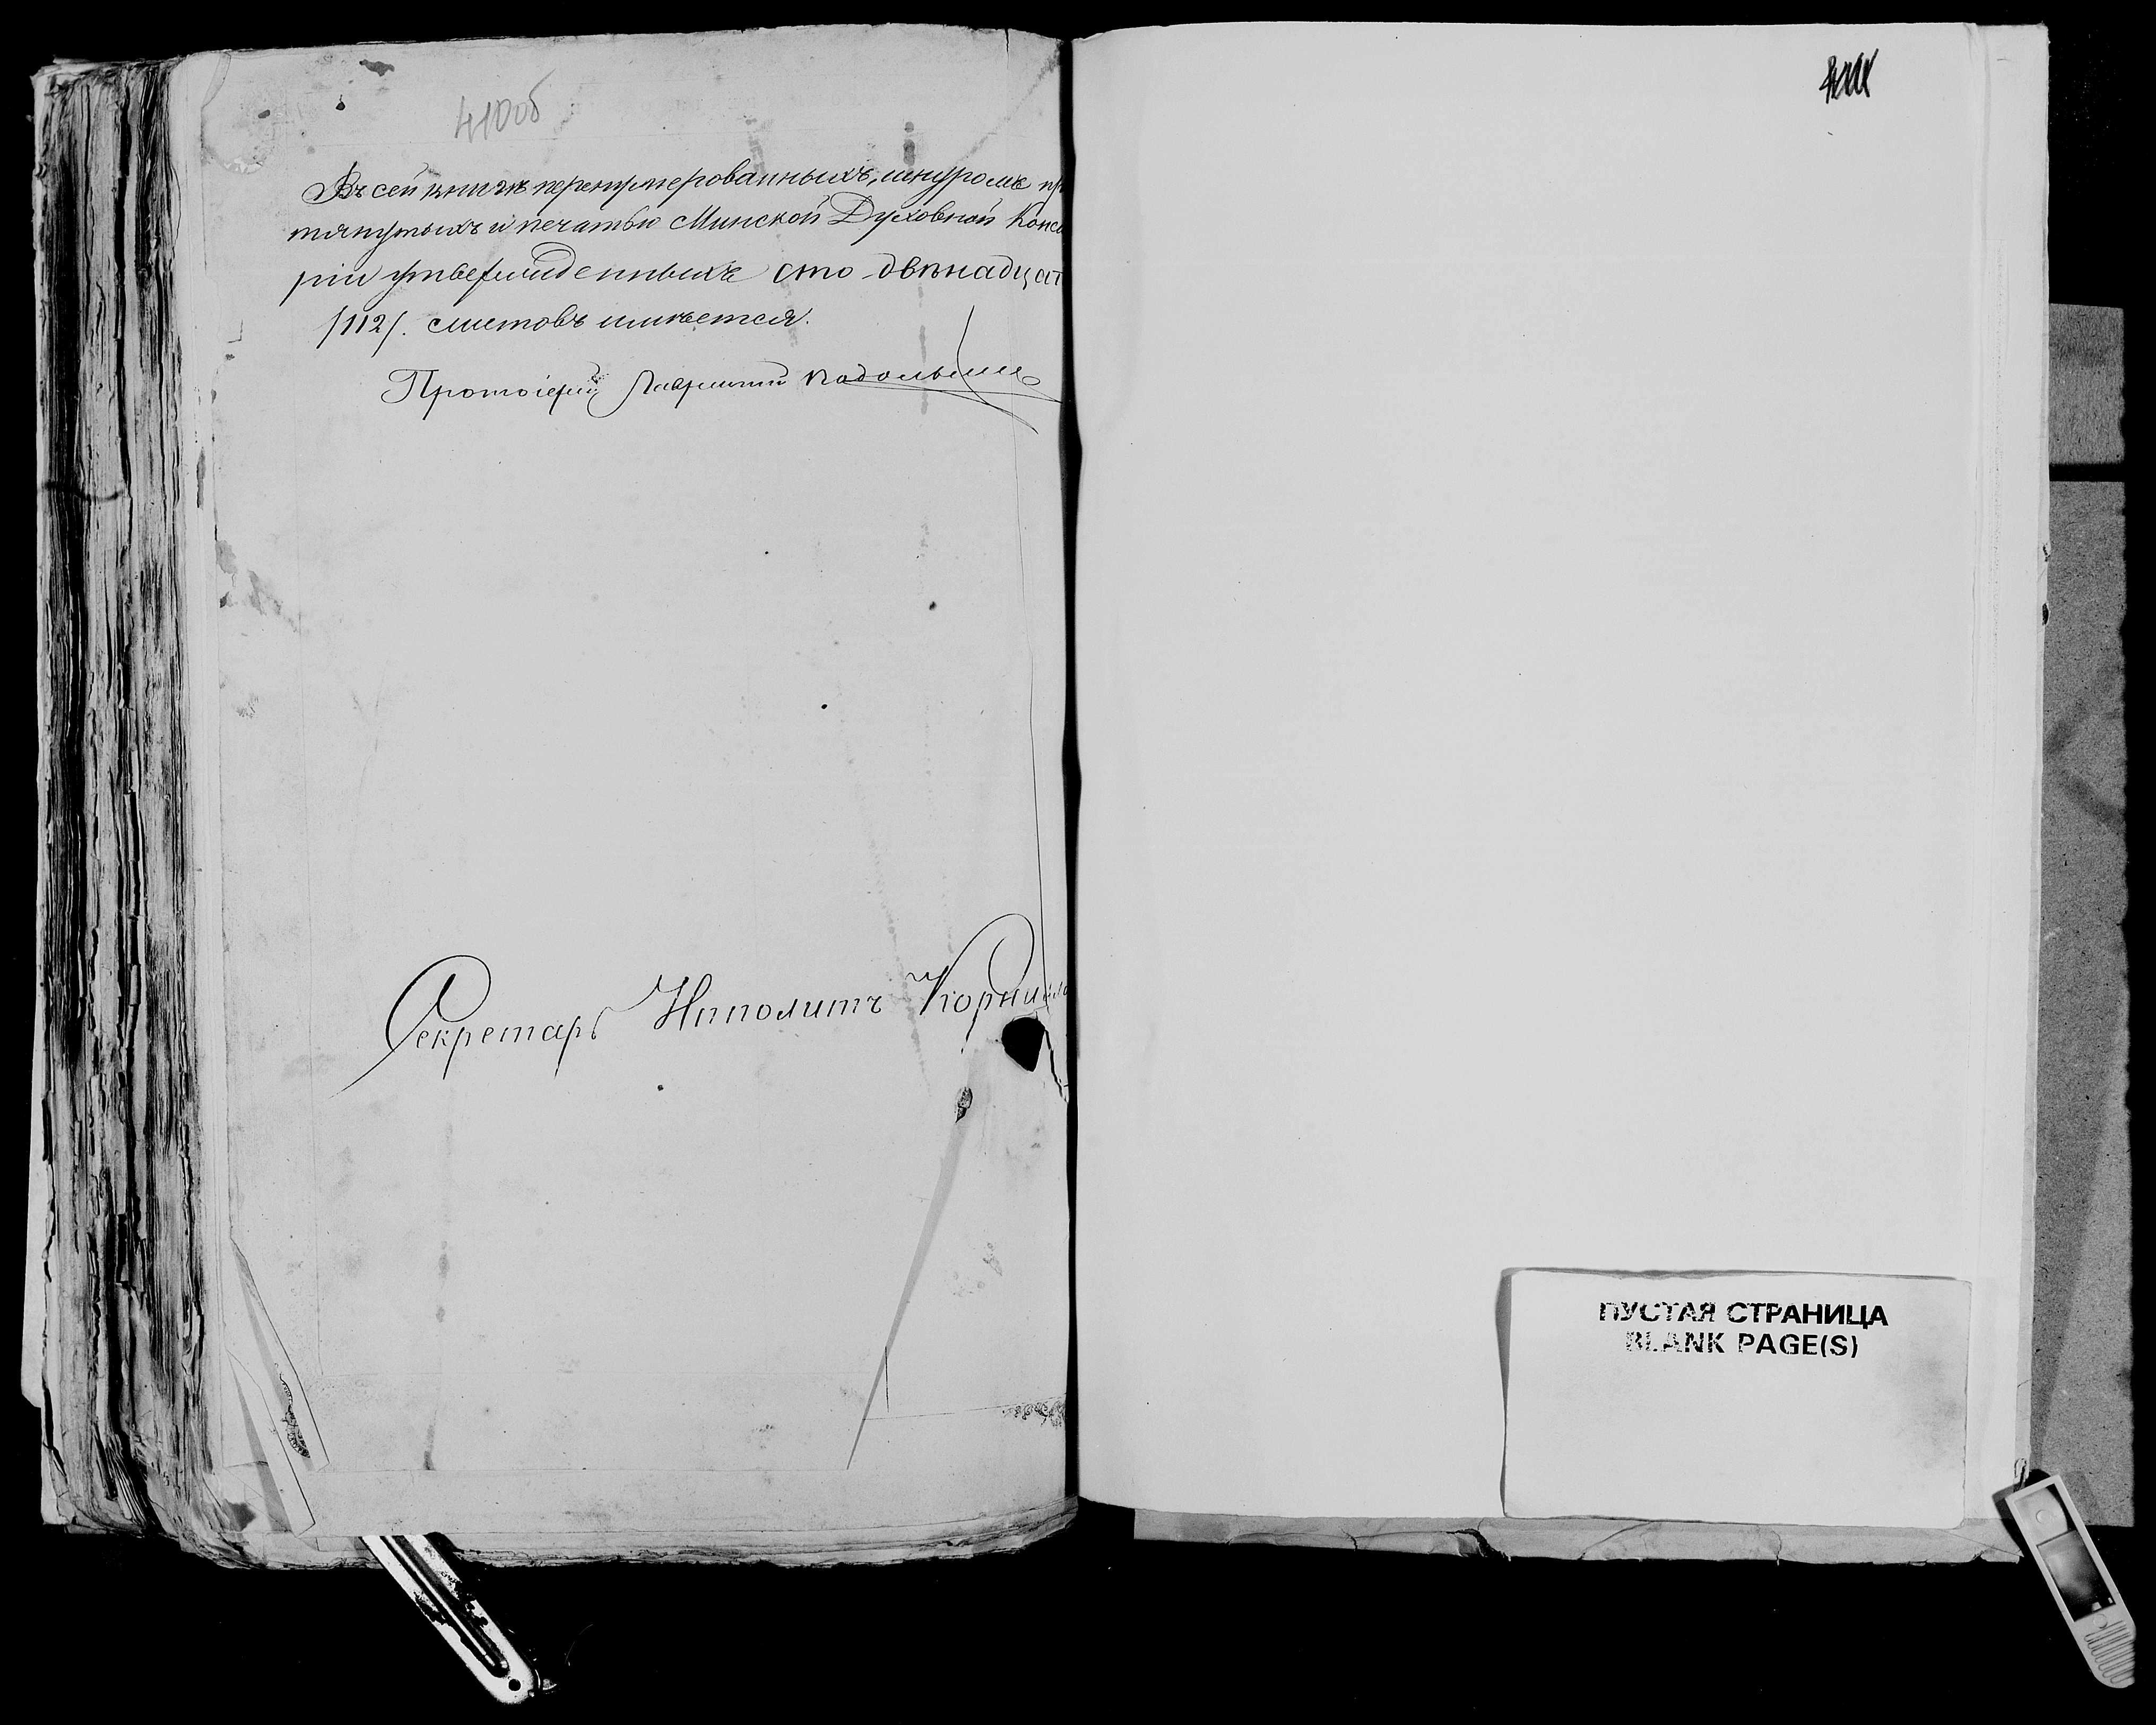 410об
Въ сей книгѣ перенумерованныхъ, шнуромъ пр
тянутыхъ и печатью Минской Духовной Конси
ріи утвержденныхъ сто двѣнадцат
/112/. листовъ имѣется.
Протоіерей Лаврентій
Секретарь Ипполитъ Корни
ПУСТАЯ СТРАНИЦА
BLANK PAGE(S)